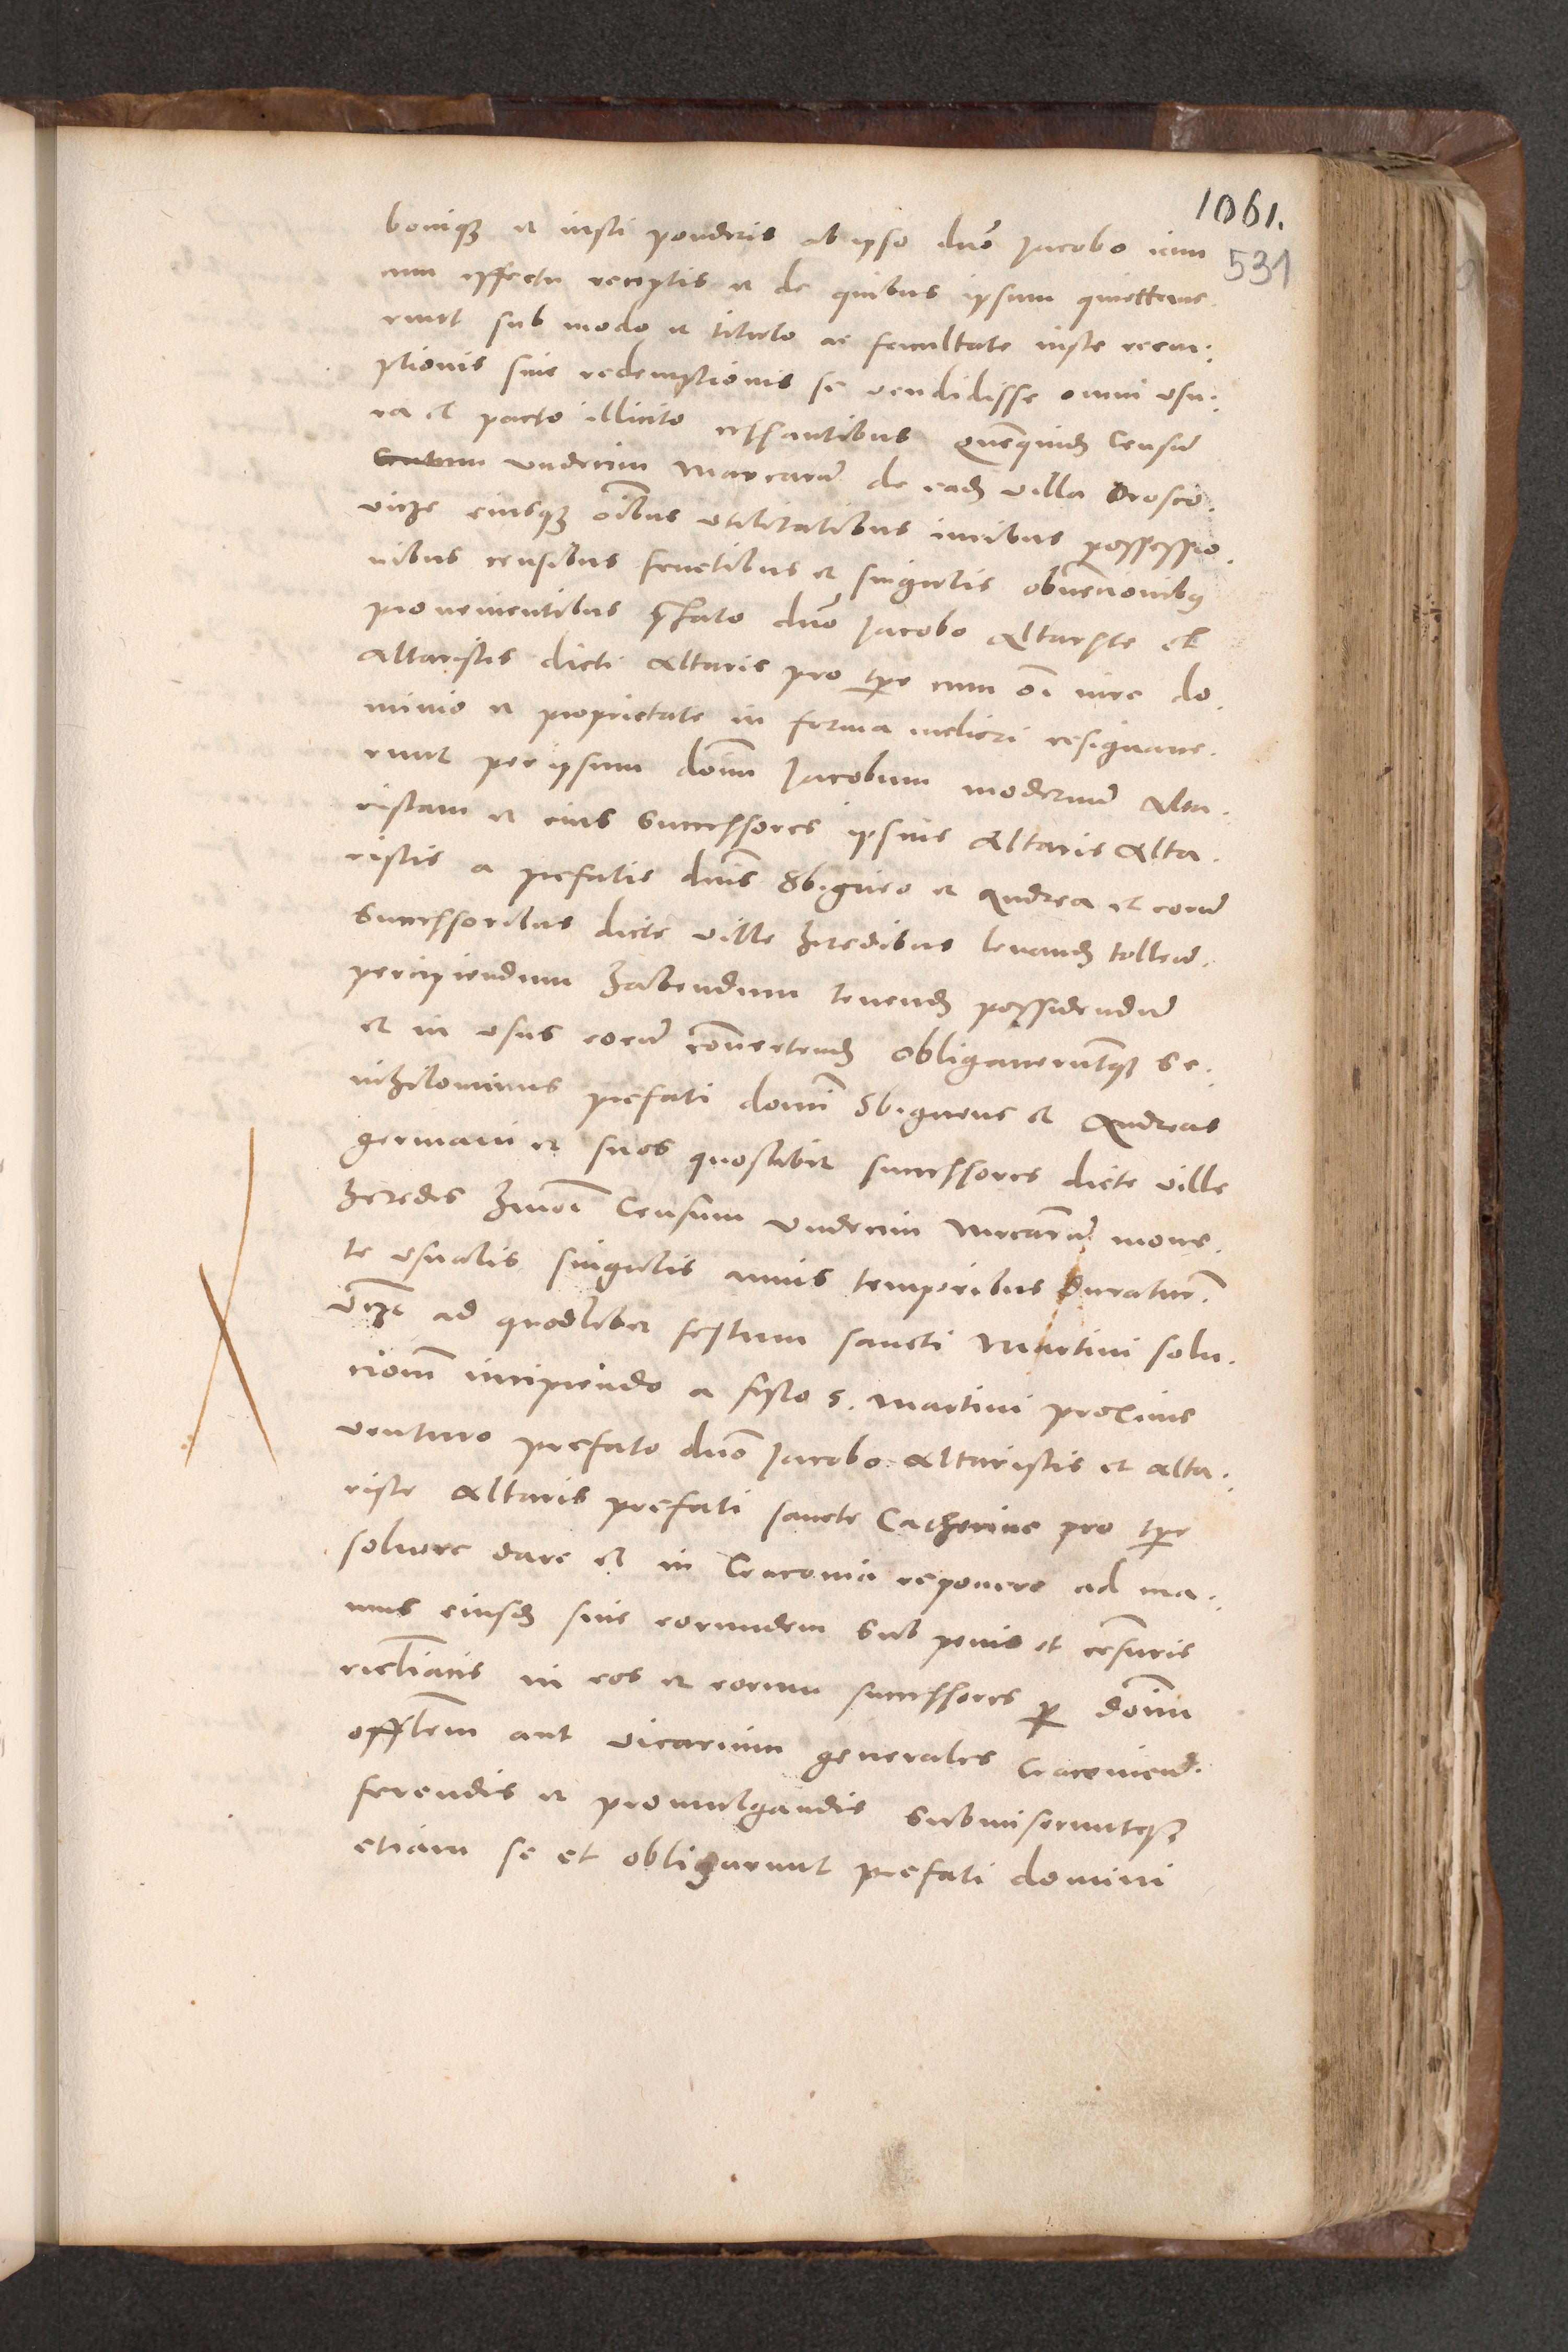 1061.
531
boniqꝫ et iusti ponderis ab ipso dno Jacobo iam
cum effectu receptis et de quibus ipsum quiettave-
runt sub modo et titulo ac facultate iuste reem:
ptionis sive redemptionis se vendidisse omni usu:
ra et pacto illicito cessantibus Quequidem Censum
undecim Marcarum de eadem villa Drosco-
vicze eiusqꝫ oibus utilitatibus iuribus possessio-
nibus censibus fructibus et singulis obvencionibus
provenientibus prefato dno Jacobo Altariste et
Altaristis dicti Altaris pro tpre cum oi iure do-
minio et proprietate in forma meliori resignave-
runt per ipsum dominum Jacobum modernum Alta-
ristam et eius Successores ipsius Altaris Alta-
ristis a prefatis dnis Sbigneo et Andrea et eorum
Successoribus dicte ville heredibus levandum tollendum
percipiendum habendum tenendum possidendum
et in usus eorum convertendum Obligaveruntqꝫ Se:
nihilominus prefati domini Sbigneus et Andreas
germani et suos quoslibet successores dicte ville
heredes huiusmodi Censum Undecim Mrcarum mone-
te usualis singulis annis temporibus Duraturis
Vizꝫ ad quodlibet festum sancti Martini solu-
cionem incipiendo a festo S. Martini proxime
venturo prefato dno Jacobo Altaristis et alta-
riste Altaris prefati sancte Catherine pro tpre
solvere dare et in Cracovia reponere ad ma-
nus eiusdem sive eorundem Sub penis et censuris
ecclesiasticis in eos et eorum successores per dominum
officialem aut vicarium generales Cracovienses
ferendis et promulgandis Submiseruntqꝫ
etiam se et obligarunt prefati domini